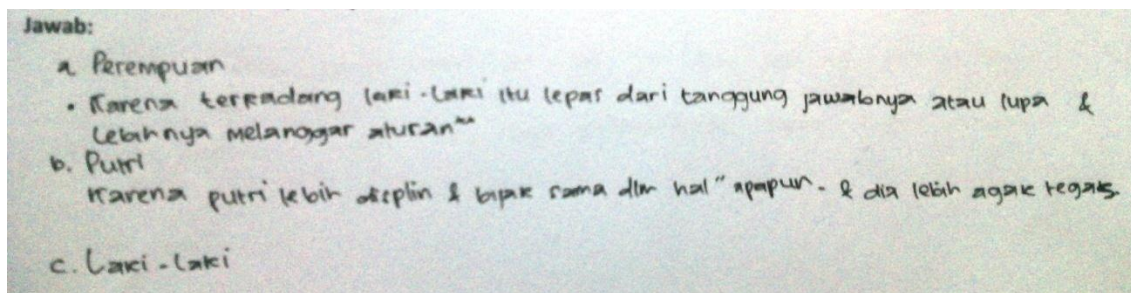 Jawab:
a Perempuan
• Karena terkadang laki-laki itu lepas dari tanggung jawabnya atau lupa &
lebihnya melanggar aturan""
b. Putri
Karena putri lebih displin & bijak sama dlm hal" apapun. & dia lebih agak tegas.
c. Laki-laki